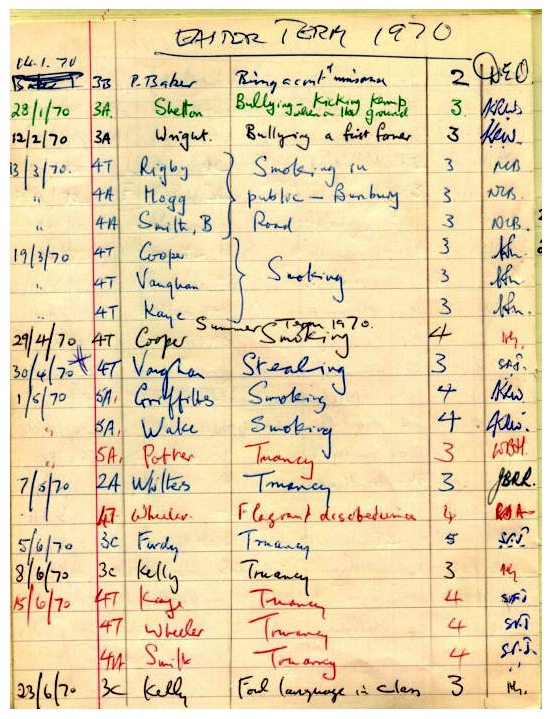 EASTER TERM 1970
14.1.70
3B P. Baker Being a continual nuisance 2
28/1/70 3A. Shelton Bullying - kicking Kemp when on the ground 3. KRW
12/2/70 3A Wright. Bullying a first former 3 KRW.
13/3/70. 4T Rigby Smoking in 3 NCB
" 4A Mogg public - Bunbury 3 NCB.
" 4A Smith, B Road 3 NCB.
19/3/70 4T Cooper 3
" 4T Vaughan Smoking 3
" 4T Kaye 3
Summer Term 1970.
29/4/70 4T Cooper Smoking 4
30/4/70 4T Vaughan Stealing 3 SFJ
1/5/70 5A, Griffiths Smoking 4 KRW
" 5A, Wake Smoking 4 KRW.
" 5A, Potter Truancy 3 WBH.
7/5/70 2A Walters Truancy 3 JBRR.
4T Wheeler. Flagrant disobedience 4
5/6/70 3C Furdy Truancy 5 SFJ
8/6/70 3C Kelly Truancy 3
15/6/70 4T Kaye Truancy 4 SFJ
4T Wheeler Truancy 4 SFJ
4A Smith Truancy 4 SFJ.
23/6/70 3C Kelly Foul language in class 3